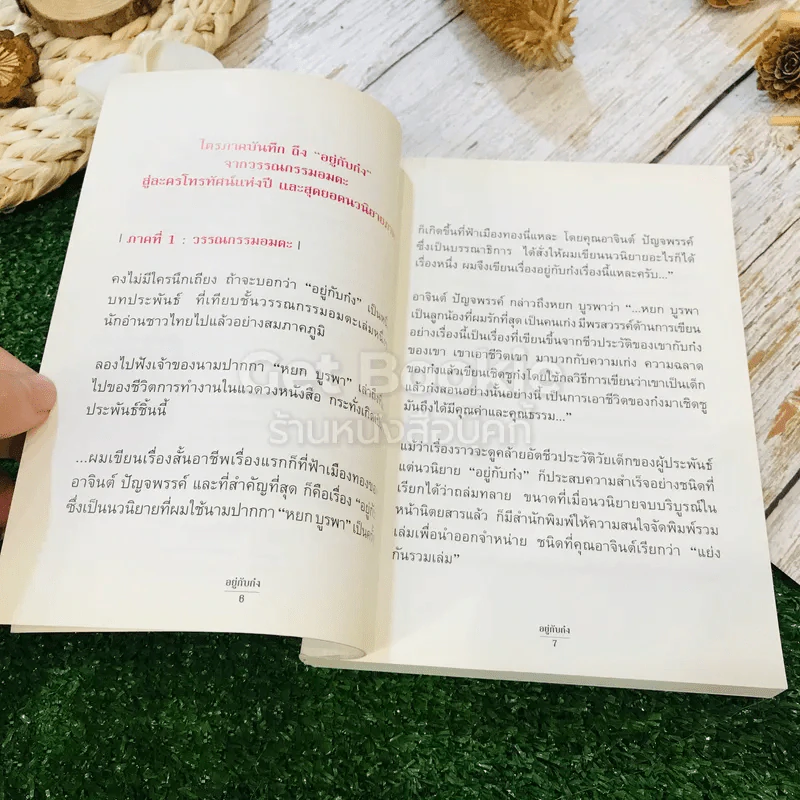 ไตรภาคบันทึก ถึง “อยู่กับก๋ง”
จากวรรณกรรมอมตะ
สู่ละครโทรทัศน์แห่งปี และสุดยอดนวนิยาย
| ภาคที่ 1 : วรรณกรรมอมตะ |
คงไม่มีใครนึกเถียง ถ้าจะบอกว่า “อยู่กับก๋ง” เป็น
บทประพันธ์ ที่เทียบชั้นวรรณกรรมอมตะเล่มหนึ่ง
นักอ่านชาวไทยไปแล้วอย่างสมภาคภูมิ
ลองไปฟังเจ้าของนามปากกา “หยก บูรพา” เล่าถึง
ไปของชีวิตการทำงานในแวดวงหนังสือ กระทั่งเกิด
ประพันธ์ชิ้นนี้
...ผมเขียนเรื่องสั้นอาชีพเรื่องแรกก็ที่ฟ้าเมืองทอง
อาจินต์ ปัญจพรรค์ และที่สำคัญที่สุด ก็คือเรื่อง “อยู่
ซึ่งเป็นนวนิยายที่ผมใช้นามปากกา “หยก บูรพา” เป็น
อยู่กับก๋ง
6
ก็เกิดขึ้นที่ฟ้าเมืองทองนี่แหละ โดยคุณอาจินต์ ปัญจพรรค์
ซึ่งเป็นบรรณาธิการ ได้สั่งให้ผมเขียนนวนิยายอะไรก็ได้
เรื่องหนึ่ง ผมจึงเขียนเรื่องอยู่กับก๋งเรื่องนี้แหละครับ...”
อาจินต์ ปัญจพรรค์ กล่าวถึงหยก บูรพาว่า “...หยก บูรพา
เป็นลูกน้องที่ผมรักที่สุด เป็นคนเก่ง มีพรสวรรค์ด้านการเขียน
อย่างเรื่องนี้เป็นเรื่องที่เขียนขึ้นจากชีวประวัติของเขากับก๋ง
ของเขา เขาเอาชีวิตเขา มาบวกกับความเก่ง ความฉลาด
ของก๋งแล้วเขียนเชิดชูก๋งโดยใช้กลวิธีการเขียนว่าเขาเป็นเด็ก
แล้วก๋งสอนอย่างนั้นอย่างนี้ เป็นการเอาชีวิตของก๋งมาเชิดชู
มันถึงได้มีคุณค่าและคุณธรรม...”
แม้ว่าเรื่องราวจะดูคล้ายอัตชีวประวัติวัยเด็กของผู้ประพันธ์
แต่นวนิยาย “อยู่กับก๋ง” ก็ประสบความสำเร็จอย่างชนิดที่
เรียกได้ว่าถล่มทลาย ขนาดที่เมื่อนวนิยายจบบริบูรณ์ใน
หน้านิตยสารแล้ว ก็มีสำนักพิมพ์ให้ความสนใจจัดพิมพ์รวม
เล่มเพื่อนำออกจำหน่าย ชนิดที่คุณอาจินต์เรียกว่า “แย่ง
กันรวมเล่ม”
อยู่กับก๋ง
7
ร้านหนังสือบุ๊คกี้